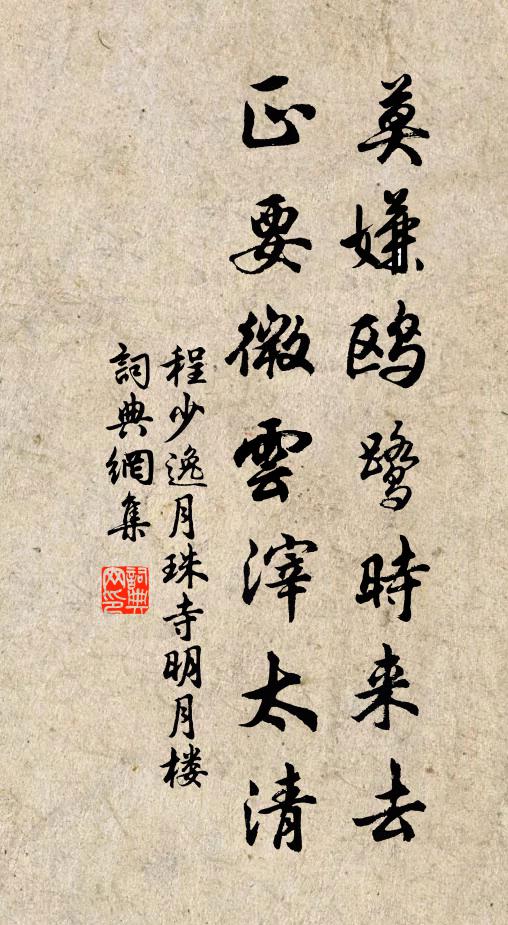 莫嫌鸥鹭时来去
正要微雲滓太清
程少逸月珠寺明月楼
詞典網集
詞典
网印